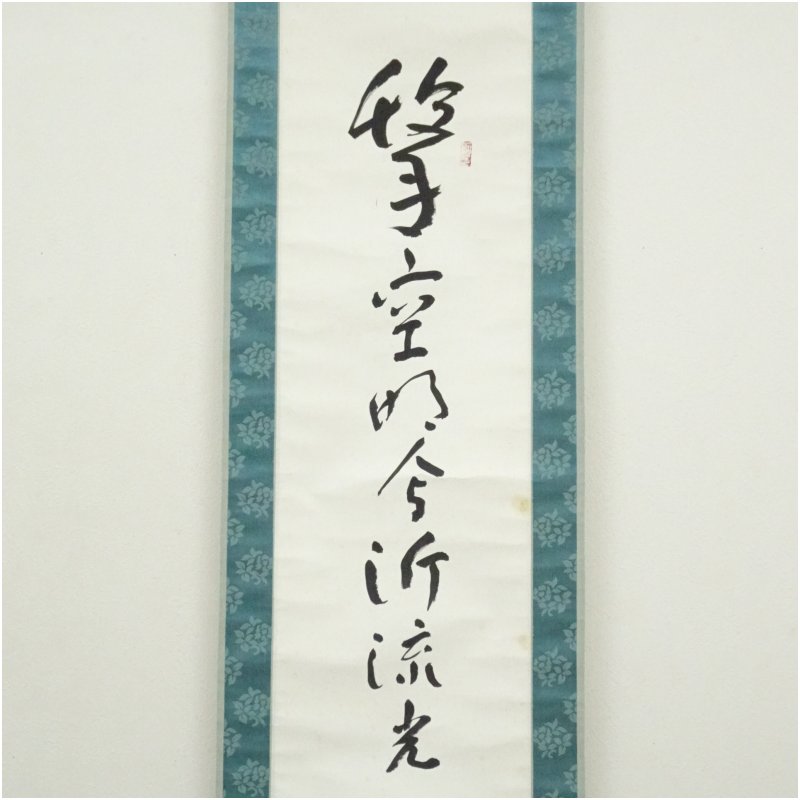 撃空明兮泝流光